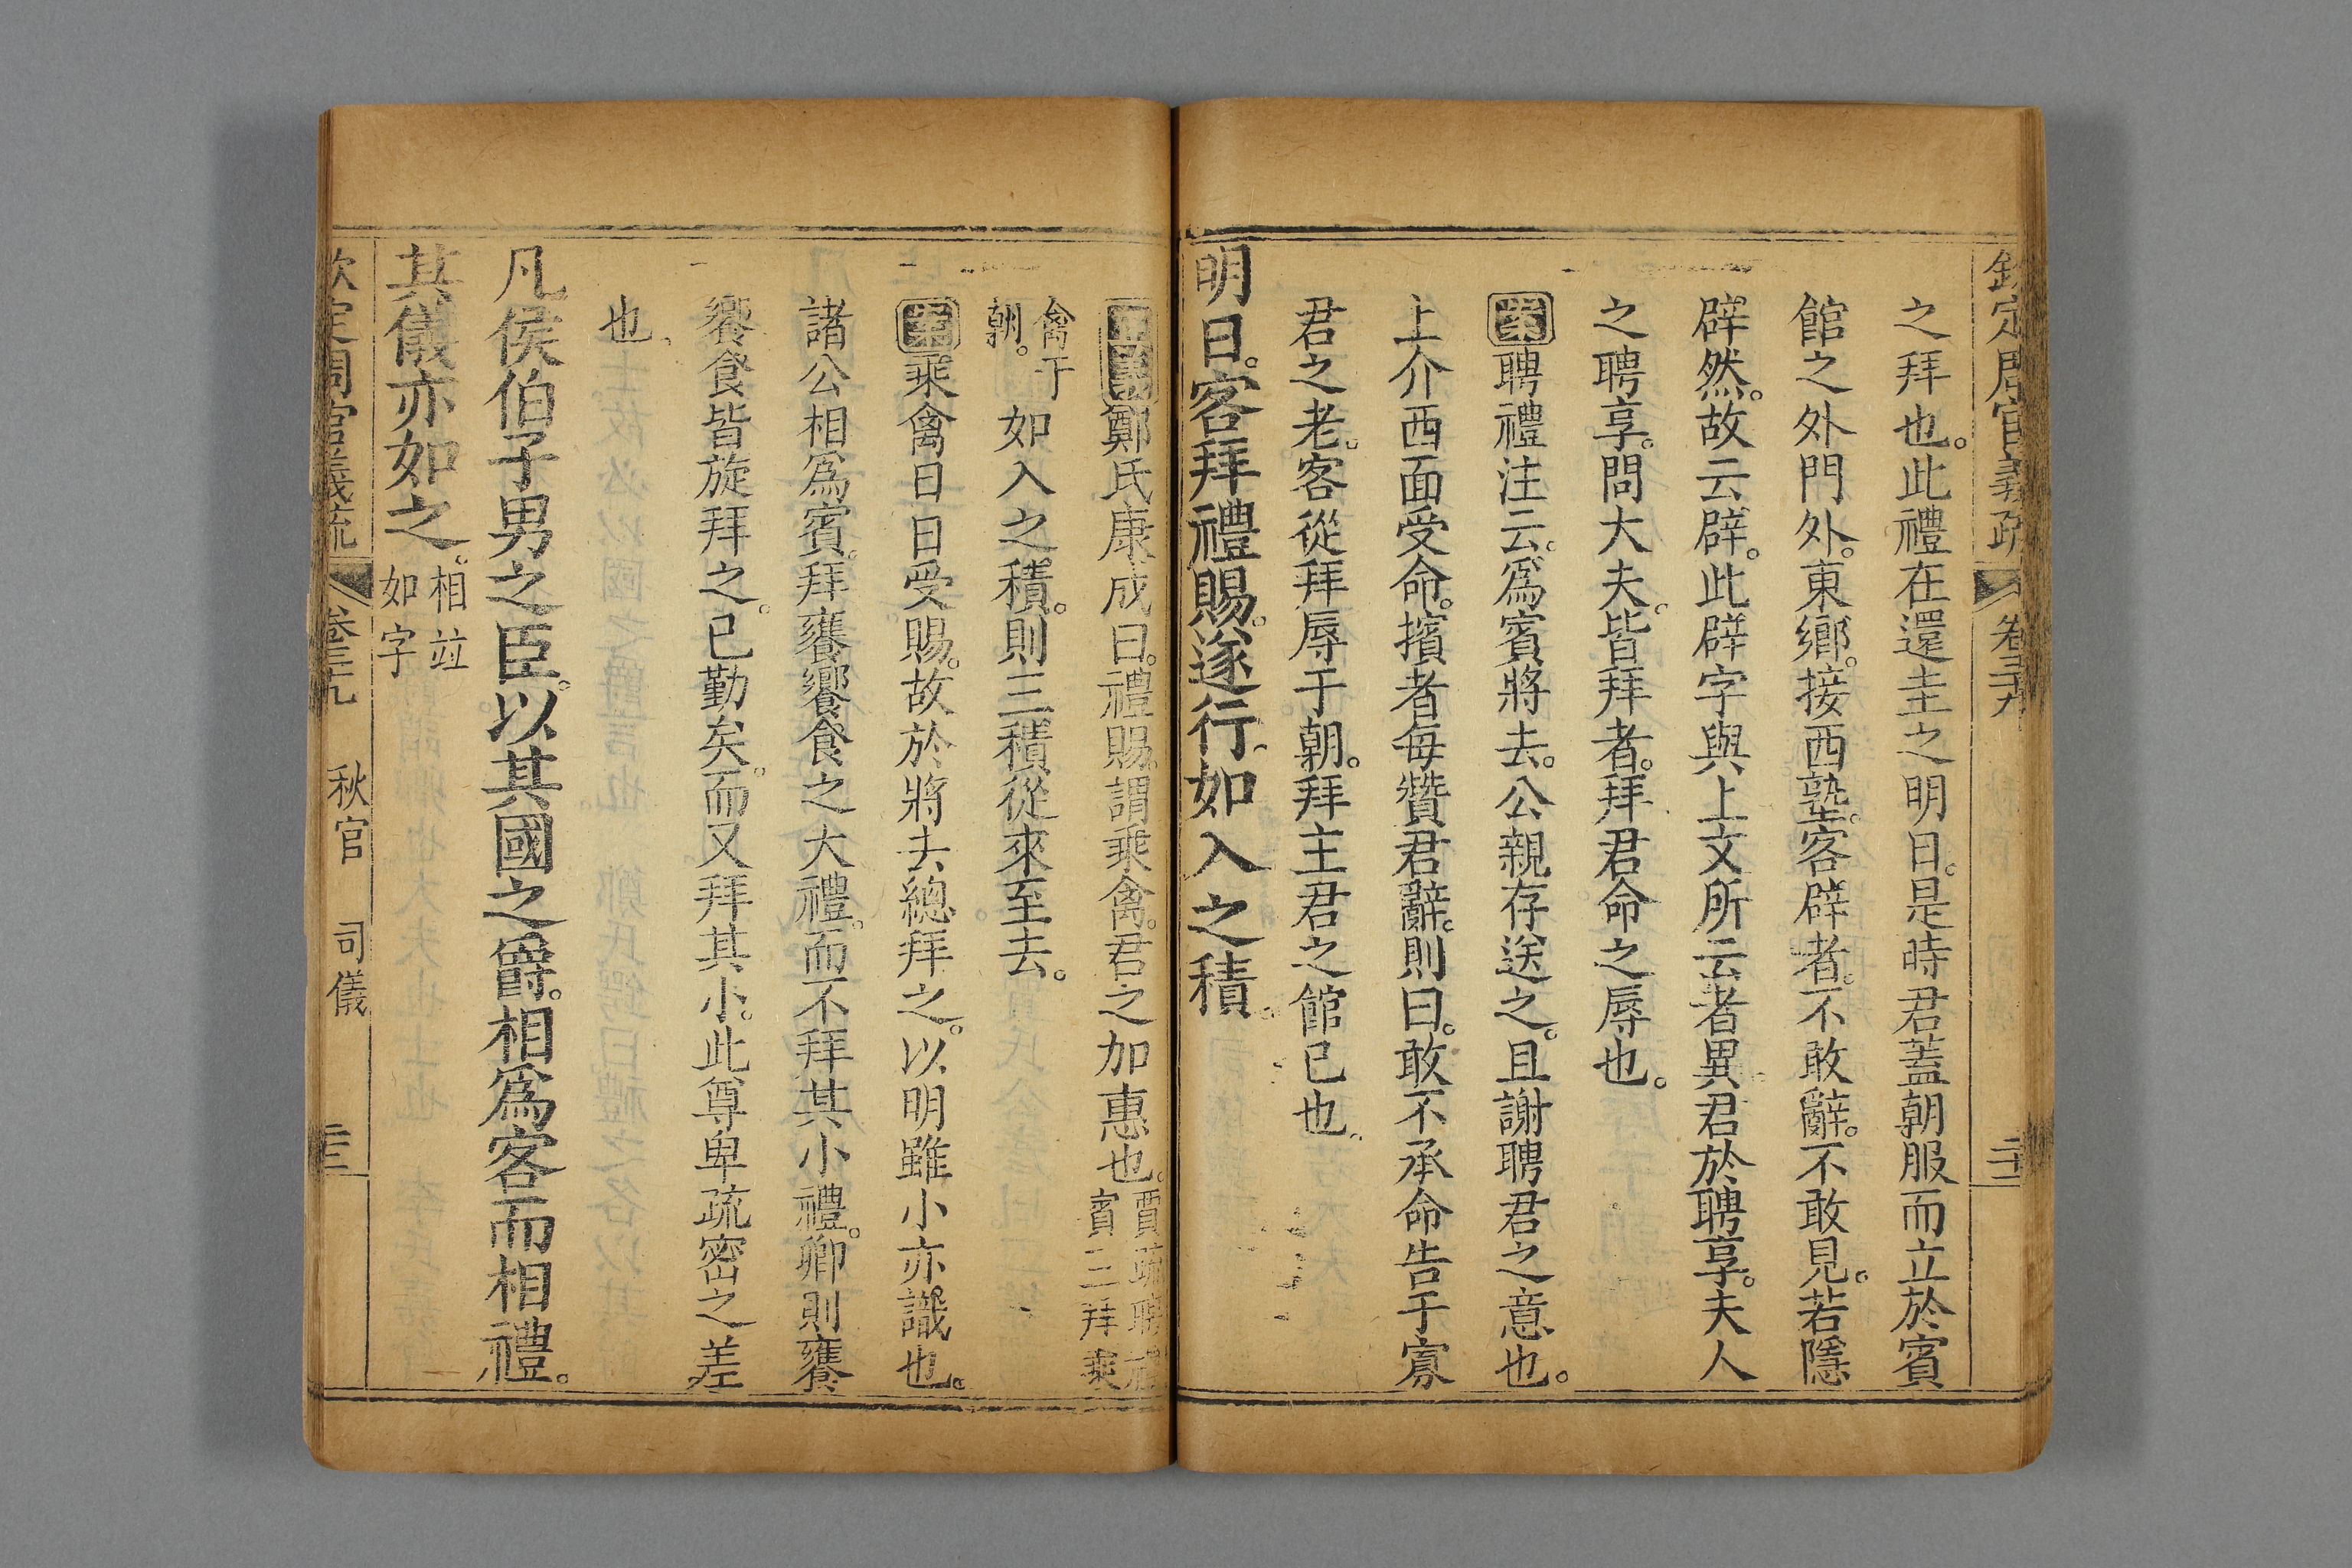 欽定周官義疏 卷三十九 二十二
之拜也。此禮在還圭之明日。是時君蓋朝服而立於賓
館之外門外。東鄉。接西塾。客辟者。不敢辭。不敢見。若隱
辟然。故云辟。此辟字與上文所云者異。君於聘享。夫人
之聘享。問大夫。皆拜者。拜君命之辱也。
案聘禮注云。爲賓將去。公親存送之。且謝聘君之意也。
上介西面受命。擯者每贊君辭。則曰。敢不承命告于寡
君之老。客從拜辱于朝。拜主君之館已也。
明日。客拜禮賜。遂行。如入之積。
正義鄭氏康成曰。禮賜。謂乘禽。君之加惠也。賈疏聘禮
賓三拜乘
禽于
朝。
如入之積。則三積從來至去。
案乘禽日日受賜。故於將去總拜之。以明雖小亦識也。
諸公相爲賓。拜饔饗食之大禮。而不拜其小禮。卿則饔
饗食皆旋拜之。已勤矣。而又拜其小。此尊卑疏密之差
也。
凡侯伯子男之臣。以其國之爵。相爲客而相禮。
其儀亦如之。相竝
如字
欽定周官義疏 卷三十九 秋官 司儀 二十三